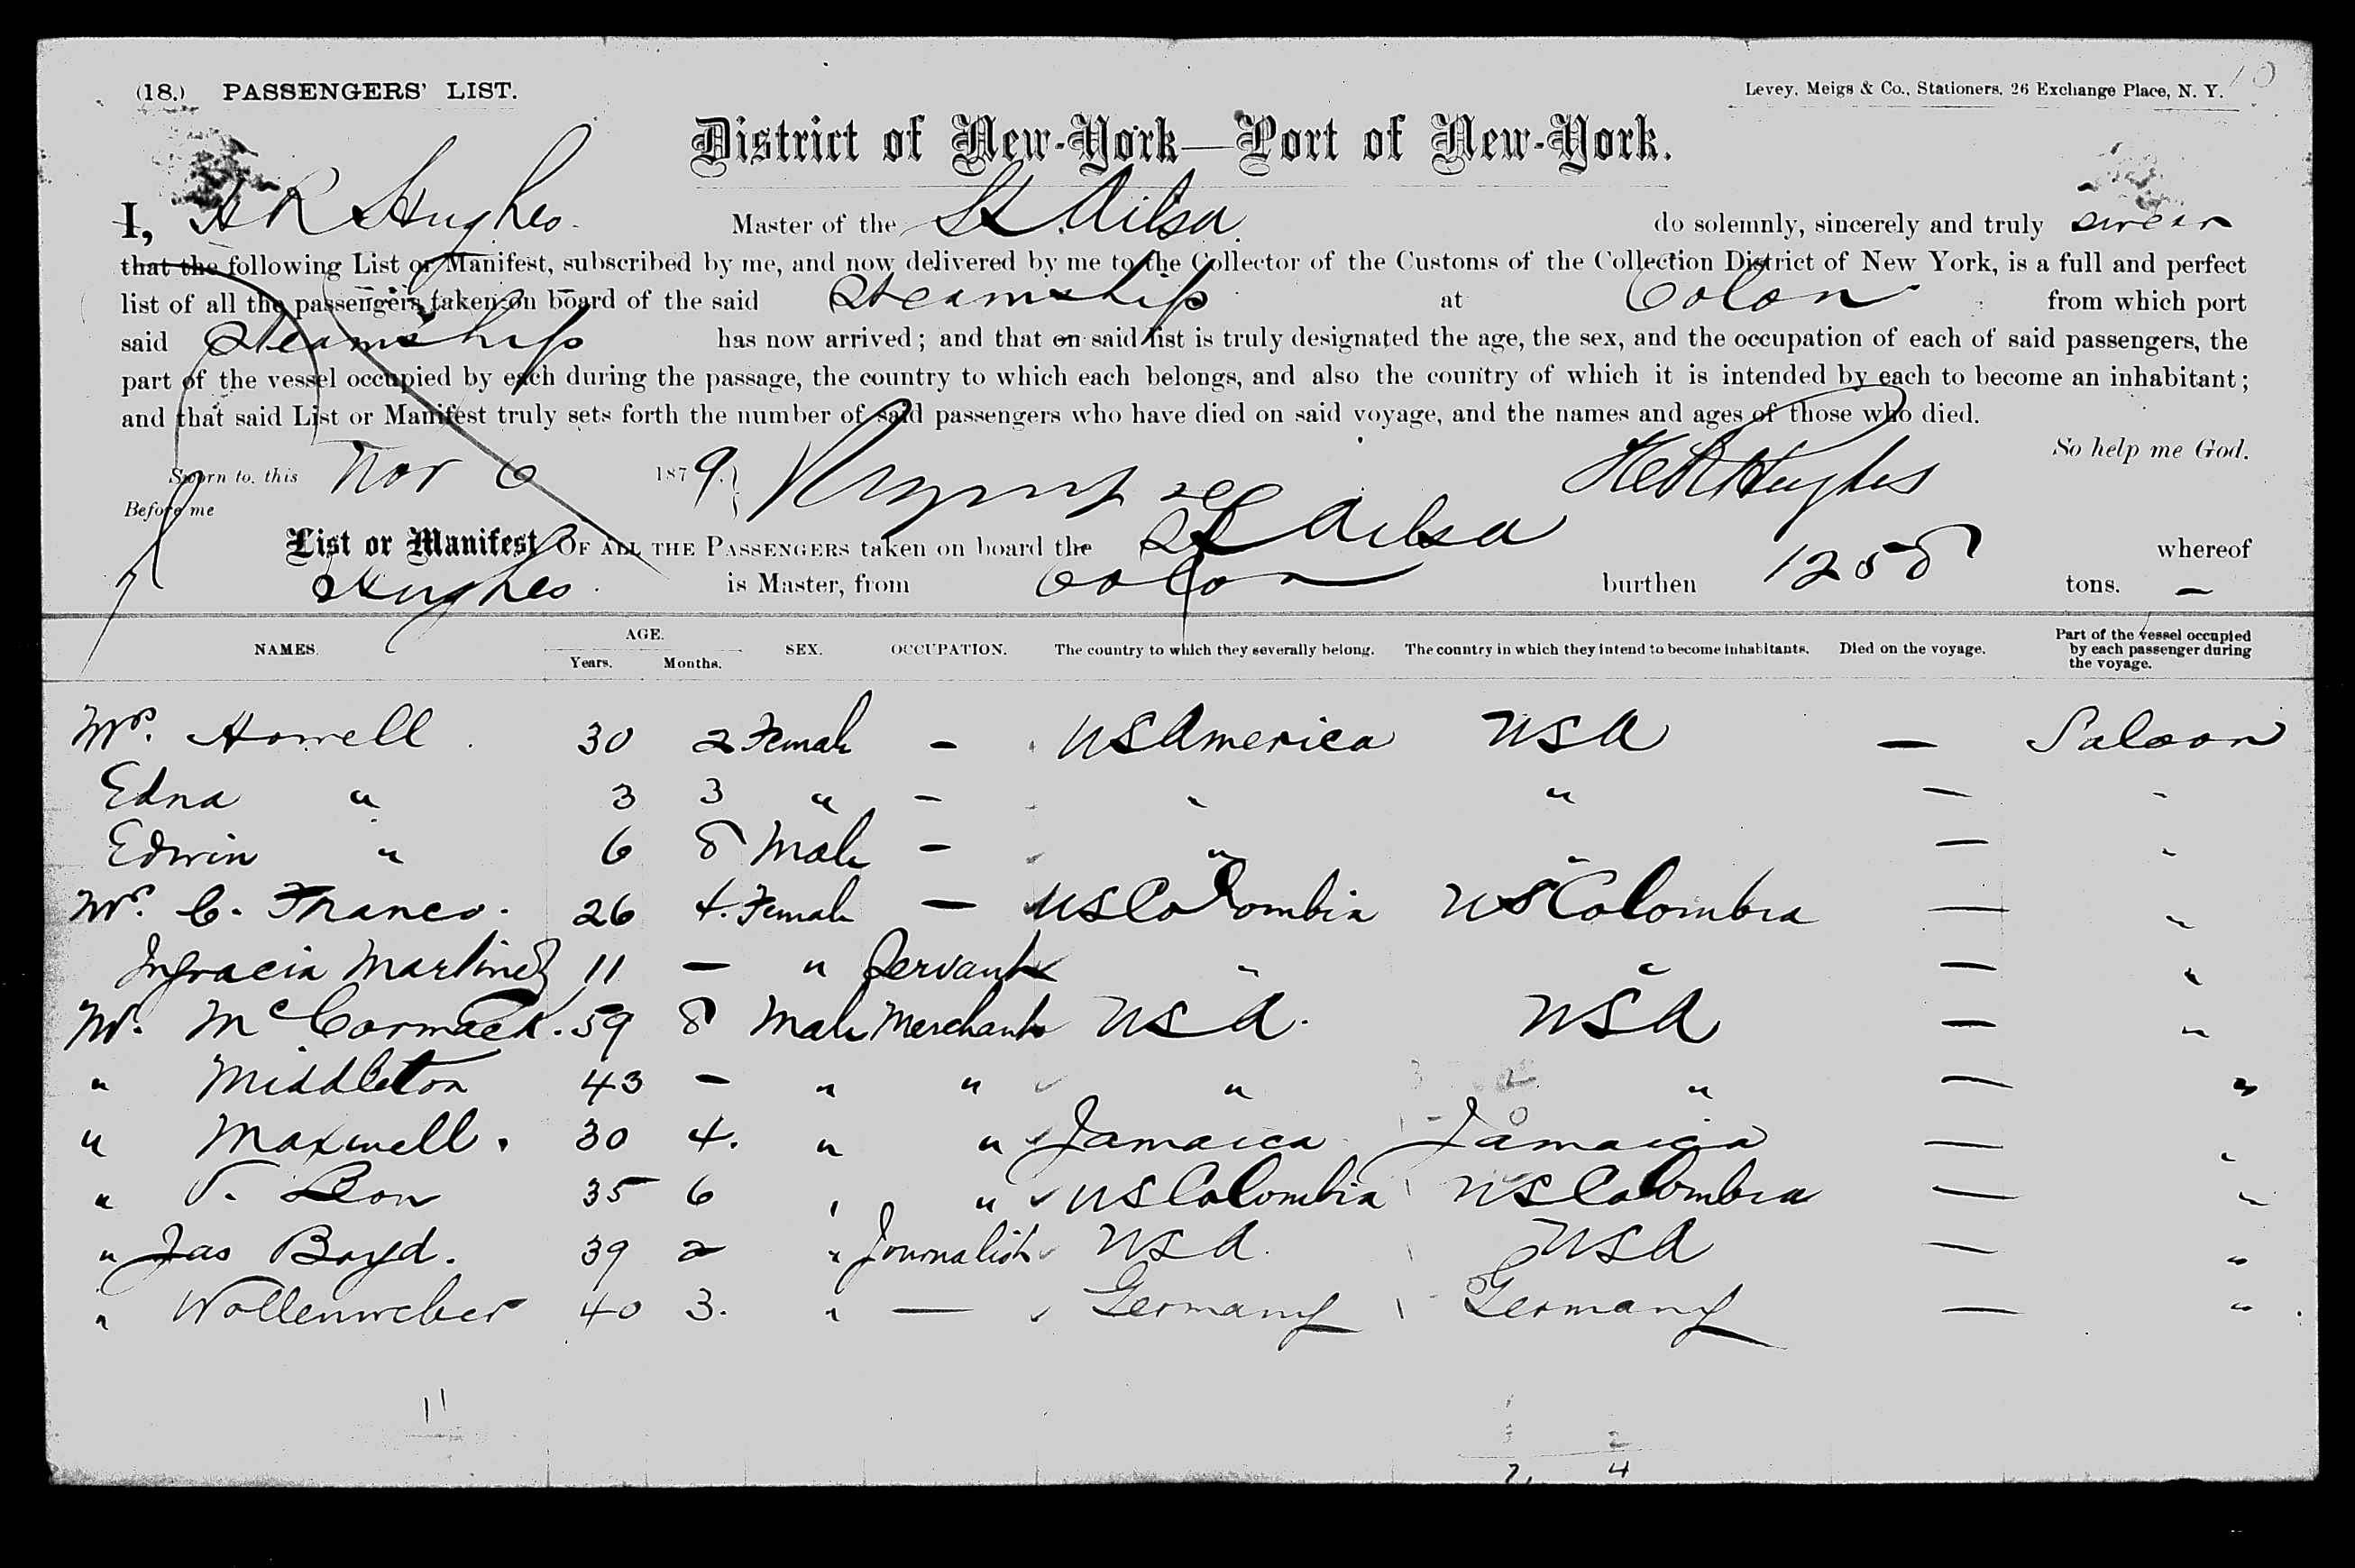 (18.) PASSENGERS' LIST.
Levey, Meigs & Co., Stationers, 26 Exchange Place, N. Y.
10
District of New-York—Port of New-York.
I, H R Hughes Master of the St. Ailsa do solemnly, sincerely and truly swear
that the following List or Manifest, subscribed by me, and now delivered by me to the Collector of the Customs of the Collection District of New York, is a full and perfect
list of all the passengers taken on board of the said Steamship at Colon from which port
said Steamship has now arrived; and that on said list is truly designated the age, the sex, and the occupation of each of said passengers, the
part of the vessel occupied by each during the passage, the country to which each belongs, and also the country of which it is intended by each to become an inhabitant;
and that said List or Manifest truly sets forth the number of said passengers who have died on said voyage, and the names and ages of those who died.
So help me God.
Sworn to, this Nov 6 1879. HR Hughes
Before me
List or Manifest OF ALL THE PASSENGERS taken on board the St Ailsa whereof
Hughes is Master, from Colon burthen 1258 tons. —
NAMES. AGE. Years. Months. SEX. OCCUPATION. The country to which they severally belong. The country in which they intend to become inhabitants. Died on the voyage. Part of the vessel occupied by each passenger during the voyage.
Mrs. Howell 30 2 Female – US America USA — Saloon
Edna " 3 3 " – " " — "
Edwin " 6 8 Male – " " — "
Mrs. C. Franco. 26 4. Female — US Colombia US Colombia — "
Ingracia Martinez 11 — " Servant " " — "
Mr. McCormack. 59 8 Male Merchant USA. USA — "
" Middleton 43 — " " " " — "
" Maxwell. 30 4. " " Jamaica Jamaica — "
" Leon 35 6 " " US Colombia US Colombia — "
" Jas Boyd. 39 2 " Journalist USA. USA — "
" Wollenweber 40 3. " — Germany Germany — "
11
7 4